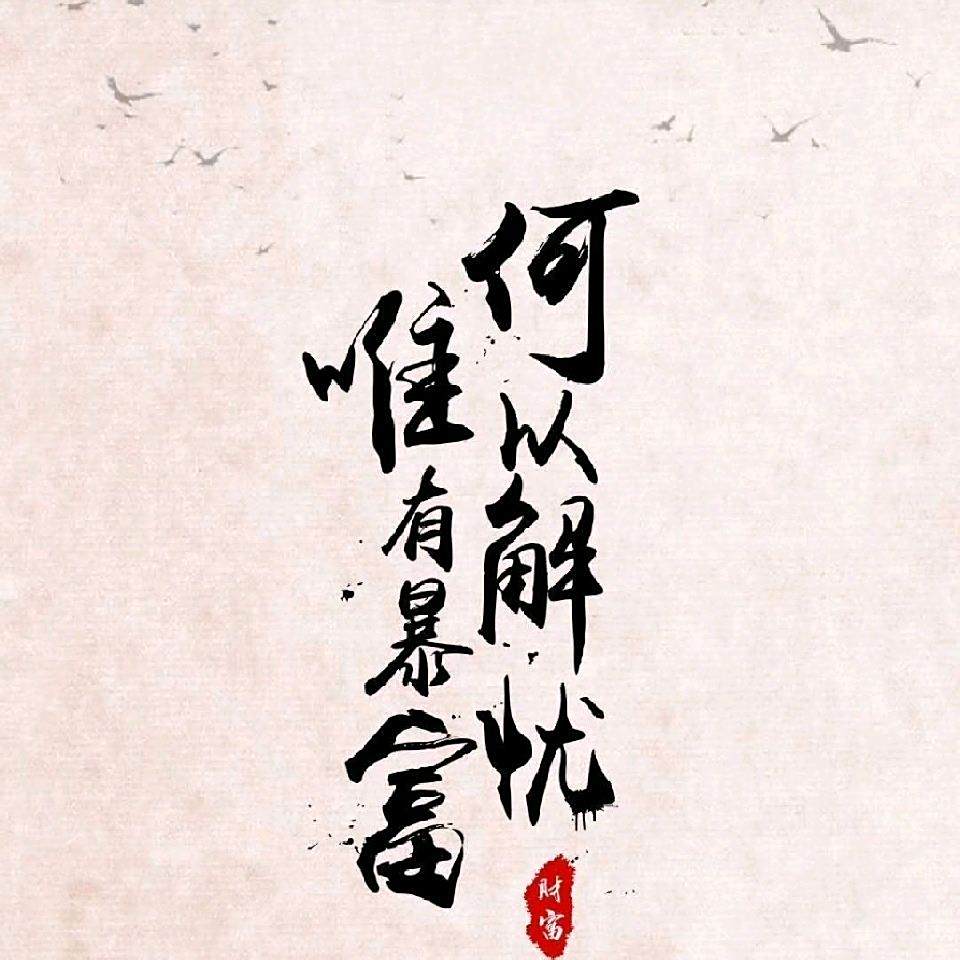 何以解忧
唯有暴富
财富